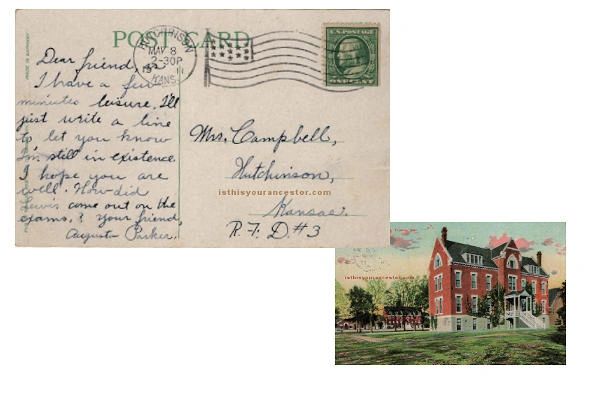 POST CARD
HUTCHINSON
MAY 8
2-30P
KANS.
U.S. POSTAGE
ONE CENT
Dear friend,
I have a few
minutes leisure. I'll
just write a line
to let you know
I'm still in existence
I hope you are
well. How did
Lewis come out on the
exams.? Your friend,
Augusta Parker.
Mrs. Campbell,
Hutchinson,
isthisyourancestor.com
Kansas.
R.F.D.#3
isthisyourancestor.com